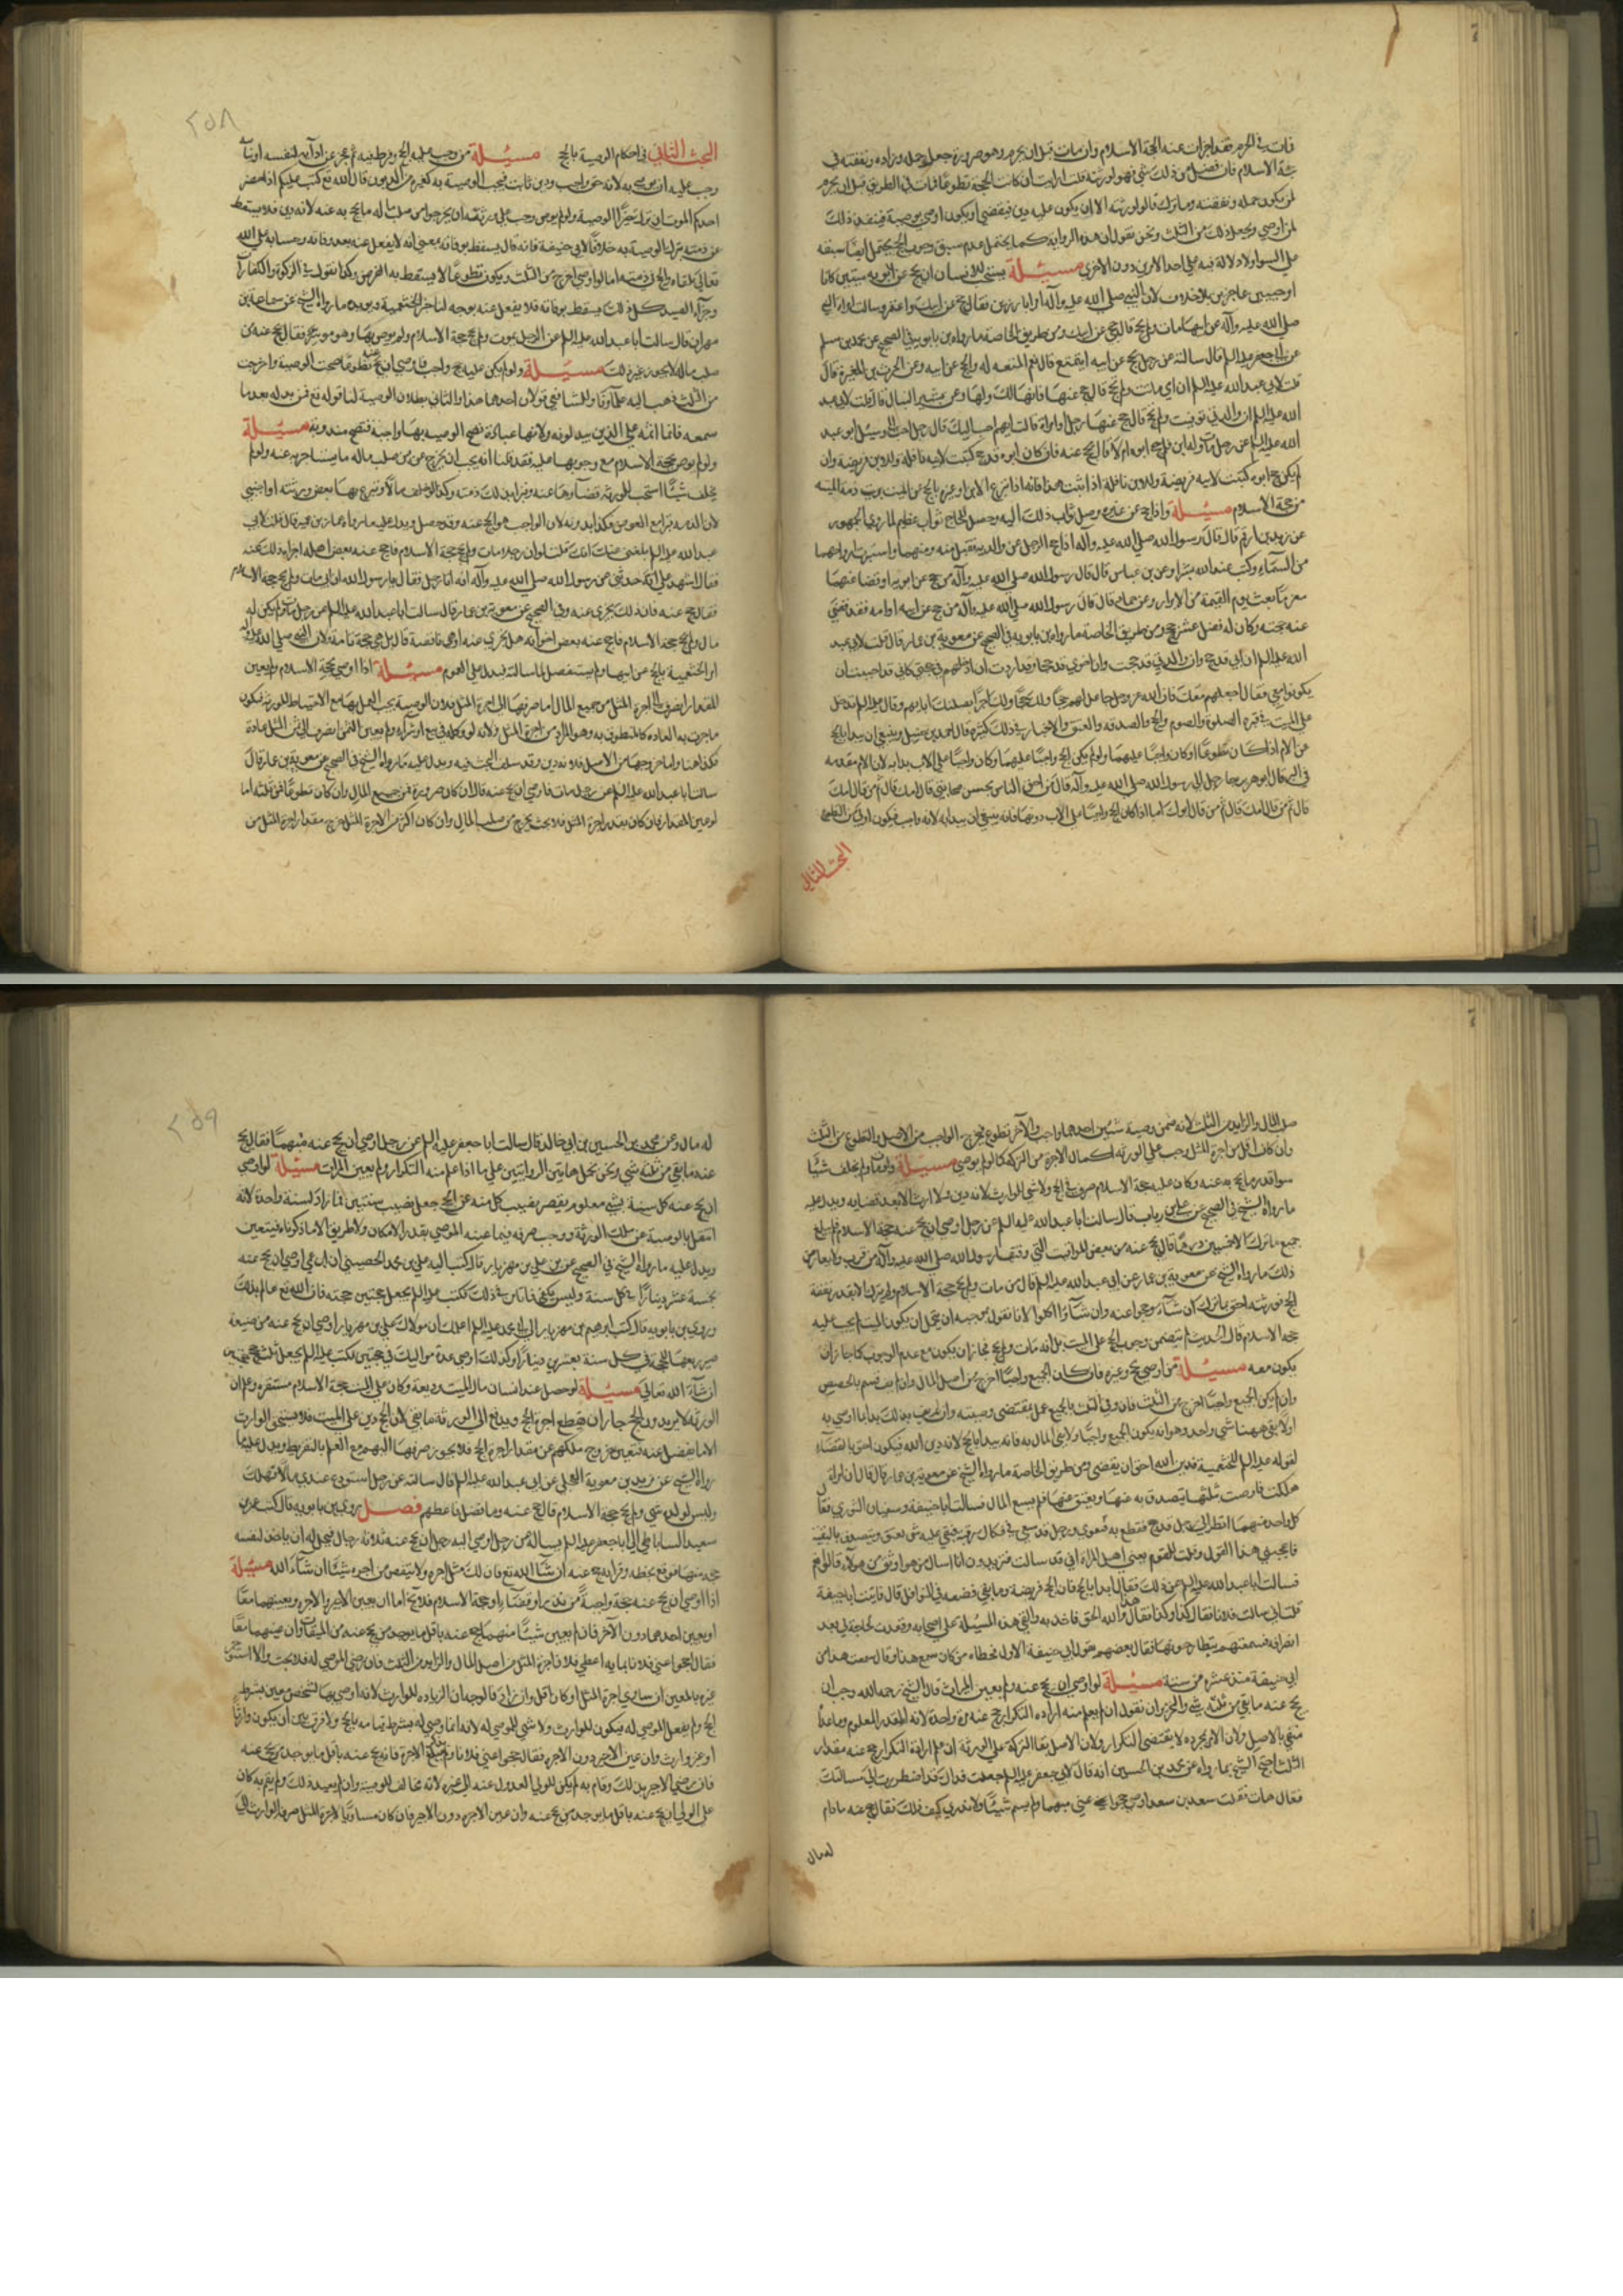 فمات في الحرم فقد اجزات عنه حجة الاسلام وان مات قبل ان يحرم وهو صرورة جعل جمله وزاده ونفقته في
حجة الاسلام فان فضل من ذلك شي فهو لورثته قلت ارايت ان كانت الحجة تطوعا فمات في الطريق قبل ان يحرم
لمن يكون جمله ونفقته وما ترك قال لورثته الا ان يكون عليه دين فيقضي او يكون اوصي بوصية فينفذ ذلك
لمن اوصي ويجعل ذلك من الثلث ونحن نقول ان هذه الرواية كما يحتمل عدم سبق وجوب الحج يحتمل ايضا سبقه
علي السواء ولا دلالة فيه علي احد الامرين دون الاخري مسئلة يستحب للانسان ان يحج عن ابويه ميتين كانا
او حيين عاجزين بلا خلاف لان النبي صلي الله عليه وآله امر ابا رزين فقال حج عن ابيك واعتمر وسالت امراة النبي
صلي الله عليه وآله عن ابيها مات ولم يحج قال حجي عن ابيك ومن طريق الخاصة ما رواه ابن بابويه في الصحيح عن محمد بن مسلم
عن ابي جعفر عليه السلم قال سالته عن رجل يحج عن ابيه ايتمتع قال نعم المتعة له والحج عن ابيه وعن الحرث بن المغيرة قال
قلت لابي عبد الله عليه السلم ان
الله عليه السلم ان والدتي توفيت ولم تحج قال يحج عنها رجل او امراة قال قلت ايهما احب اليك قال رجل احب الي وسئل ابو عبد
الله عليه السلم عن رجل مات وله ابن فلم يدر حج ابوه ام لا قال يحج عنه فان كان ابوه قد حج كتبت لابيه نافلة وللابن فريضة وان
لم يكن حج ابوه كتبت لابيه فريضة وللابن نافلة اذا ثبت هذا فانه اذا تبرع الابن او غيره بالحج عن الميت برئت ذمة الميت
من حجة الاسلام مسئلة واذا حج عن غيره وصل ثواب ذلك اليه وحصل للحاج ثواب عظيم لما روي الجمهور
عن زيد بن ارقم قال قال رسول الله صلي الله عليه وآله اذا حج الرجل عن والديه تقبل منه ومنهما واستبشرت ارواحهما
من السماء وكتب عند الله برا وعن ابن عباس قال قال رسول الله صلي الله عليه وآله من حج عن ابويه او قضا عنهما
مغرما بعث يوم القيمة من الابرار وعن جابر قال قال رسول الله صلي الله عليه وآله من حج عن ابيه او امه فقد قضي
عنه حجته وكان له فضل عشر حجج ومن طريق الخاصة ما رواه ابن بابويه في الصحيح عن معوية بن عمار قال قلت لابي عبد
الله عليه السلم ان ابي قد حج وان والدتي قد حجت وان اخوي قد حجا وقد اردت ان ادخلهم في حجتي كاني قد احببت ان
يكونوا معي فقال اجعلهم معك فان الله عز وجل جاعل لهم حجا ولك حجا ولك اجرا بصلتك اياهم وقال عليه السلم يدخل
علي الميت في قبره الصلوة والصوم والحج والصدقة والعتق والاخبار في ذلك كثيرة قال احمد بن حنبل وينبغي ان يبدا بالحج
عن الام اذا كان تطوعا او كان واجبا عليهما ولو لم يكن الحج واجبا عليهما وكان واجبا علي الاب بدا به لان الام مقدمة
في البر قال ابو هريرة جاء رجل الي رسول الله صلي الله عليه وآله قال من احق الناس بحسن صحابتي قال امك قال ثم من قال امك
قال ثم من قال امك قال ثم من قال ابوك اما اذا كان الحج واجبا علي الاب دونها فانه ينبغي ان يبدا به لانه واجب فيكون اولي من التطوع
البحث الثاني
٢٥٨
البحث الثاني في احكام الوصية بالحج مسئلة من وجب عليه الحج وفرط فيه ثم عجز عن ادائه لنفسه او نيابة
وجب عليه ان يوصي به لانه حق واجب ودين ثابت فيجب الوصية به كغيره من الديون قال الله تع كتب عليكم اذا حضر
احدكم الموت ان ترك خيرا الوصية ولو لم يوص وجب علي ورثته ان يخرجوا من صلب ماله ما يحج به عنه لانه دين فلا يسقط
عن ذمته بترك الوصية به خلافا لابي حنيفة فانه قال يسقط بوفاته بمعني انه لا يفعل عنه بعد وفاته وحسابه علي الله
تعالي يلقاه والحج في ذمته اما لو اوصي اخرج من الثلث ويكون تطوعا لا يسقط به الفرض وكذا نقول في الزكوة والكفارات
وجزاء الصيد كل ذلك يسقط بوفاته فلا يفعل عنه بوجه لنا خبر الخثعمية ويؤيده ما رواه الشيخ عن سماعة بن
مهران قال سالت ابا عبد الله عليه السلم عن الرجل يموت ولم يحج حجة الاسلام ولم يوص بها وهو موسر فقال يحج عنه من
صلب ماله لا يجوز غير ذلك مسئلة ولو لم يكن عليه حج واجب فاوصي ان يحج عنه تطوعا صحت الوصية واخرجت
من الثلث ذهب اليه علماؤنا وللشافعي قولان احدهما هذا والثاني بطلان الوصية لنا قوله تع فمن بدله بعد ما
سمعه فانما اثمه علي الذين يبدلونه ولانها عبادة تصح الوصية بها واجبة فتصح مندوبة مسئلة
ولو لم يوص بحجة الاسلام مع وجوبها عليه فقد بينا انه يجب ان يخرج عن من صلب ماله ما يستاجر به عنه ولو لم
يخلف شيئا استحب للورثة قضاؤها عنه
لان الدين
عبد الله عليه السلم بلغني عنك انك قلت لو ان رجلا مات ولم يحج حجة الاسلام فاحج عنه بعض اهله اجزاه ذلك عنه
فقال اشهد علي ابي انه حدثني عن رسول الله صلي الله عليه وآله انه اتاه رجل فقال يا رسول الله ان ابي مات ولم يحج حجة الاسلام
فقال حج عنه فان ذلك يجزي عنه وفي الصحيح عن معوية بن عمار قال سالت ابا عبد الله عليه السلم عن رجل مات ولم يكن له
مال ولم يحج حجة الاسلام فاحج عنه بعض اخوانه هل يجزي عنه او هي ناقصة قال بل هي حجة تامة ولان النبي صلي الله عليه وآله
امر الخثعمية بالحج عن ابيها ولم يستفصل لما سالته فيدل علي العموم مسئلة اذا اوصي بحجة الاسلام ولم يعين
المقدار انصرف الي اجرة المثل من جميع المال
ماجرت به العادة كالمنطوق به وهو المراد من اجرة المثل ولانه لو وكله في بيع او شراء ولم يعين الثمن انصرف الي ثمن المثل عادة
فكذا هنا واما خروجها من الاصل فلانه دين وقد سلف البحث فيه ويدل عليه ما رواه الشيخ في الصحيح عن معوية بن عمار قال
سالت ابا عبد الله عليه السلم عن رجل مات فاوصي ان يحج عنه قال ان كان صرورة فمن جميع المال وان كان تطوعا فمن ثلثه اما
لو عين المقدار فان كان بقدر اجرة المثل فلا بحث يخرج من صلب المال وان كان اكثر من الاجرة المثل خرج مقدار اجرة المثل من
صلب المال والزايد من الثلث لانه ضمن وصيته شيئين احدهما واجب والآخر تطوع فيخرج الواجب من الاصل والتطوع من الثلث
وان كان اقل من اجرة المثل وجب علي الورثة اكمال الاجرة من التركة كما لو لم يوص مسئلة ولو مات ولم يخلف شيئا
سوا قدر ما يحج به عنه وكان عليه حجة الاسلام صرف في الحج ولا شي للوارث لانه دين ولا ارث الا بعد قضائه ويدل عليه
ما رواه الشيخ في الصحيح عن علي بن رياب قال سالت ابا عبد الله عليه السلم عن رجل اوصي ان يحج عنه حجة الاسلام فلم يبلغ
جميع ما ترك الا خمسين درهما قال يحج عنه من بعض المواقيت التي وقتها رسول الله صلي الله عليه وآله من قرب ولا يعارض
ذلك ما رواه الشيخ عن معوية بن عمار عن ابي عبد الله عليه السلم قال من مات ولم يحج حجة الاسلام ولم يترك الا بقدر نفقة
الحج فورثته احق بما ترك ان شاؤا حجوا عنه وان شاؤا اكلوا لانا نقول بموجبه اذ يحتمل ان يكون الميت لم يجب عليه
حجة الاسلام
يكون معه مسئلة من اوصي بحج وغيره فان كان الجميع واجبا اخرج من اصل المال وان لم يف قسم بالحصص
وان لم يكن الجميع واجبا اخرج من الثلث فان وفي الثلث بالجميع عمل بمقتضي وصيته وان لم يف بذلك بدا بما اوصي به
اولا بقي ههنا شي واحد وهو انه يكون الجميع واجبا ولا يفي المال به فانه يبدا بالحج لانه دين الله فيكون احق بالقضاء
لقوله عليه السلم للخثعمية فدين الله احق ان يقضي ومن طريق الخاصة ما رواه الشيخ عن معوية بن عمار قال قال ان امراة
هلكت فاوصت بثلثها يتصدق به عنها ويحج عنها ويعتق عنها فلم يسع المال فسالت ابا حنيفة وسفيان الثوري فقال
كل واحد منهما انظر الي رجل قد حج فقطع به فيقوي ورجل قد سعي في فكاك رقبته فبقي عليه شي يعتق ويتصدق بالبقية
فاعجبني هذا القول وقلت للقوم يعني اهل المراة اني قد سالت فتريدون ان اسال من هو اوثق من هولاء قالوا نعم
فسالت ابا عبد الله عليه السلم عن ذلك فقال ابدا بالحج فان الحج فريضة وما بقي فضعه في النوافل قال فاتيت ابا حنيفة
فقلت اني سالت فلانا فقال كذا وكذا فقال هذا والله الحق فاخذ به والقي هذه المسئلة علي اصحابه وقعدت لحاجة لي بعد
انصرافه فسمعتهم يتطارحونها فقال بعضهم بقول ابي حنيفة الاول فخطاه من كان سمع هذا وقال سمعت هذا من
ابي حنيفة منذ عشرين سنة مسئلة لو اوصي ان يحج عنه ولم يعين المرات قال الشيخ رحمه الله وجب ان
يحج عنه ما بقي من ثلثه شي والتحرير ان نقول ان لم يعلم منه ارادة التكرار حج عنه مرة واحدة لانه المقدار المعلوم وما عداه
منفي بالاصل ولان الامر بمجرده لا يقتضي التكرار ولان الاصل بقاء التركة علي الورثة وان علم ارادة التكرار حج عنه مقدار
الثلث احتج الشيخ بما رواه عن محمد بن الحسين انه قال لابي جعفر عليه السلم جعلت فداك قد اضطررت الي مسالتك
فقال هات فقلت سعد بن سعد اوصي حجوا عني مبهما ولم يسم شيئا ولا ندري كيف ذلك فقال يحج عنه ما دام
له مال
٢٥٩
له مال وعن محمد بن الحسين بن ابي خالد قال سالت ابا جعفر عليه السلم عن رجل اوصي ان يحج عنه مبهما فقال يحج
عنه ما بقي من ثلثه شي ونحن نحمل هاتين الروايتين علي ما اذا علم منه التكرار ولم يعين المرات مسئلة لو اوصي
ان يحج عنه كل سنة بشي معلوم فقصر نصيب كل سنة عن الحج جعل نصيب سنتين فما زاد لسنة واحدة لانه
انتقل بالوصية عن ملك الورثة ووجب صرفه فيما عينه الموصي بقدر الامكان ولا طريق الا ما ذكرناه فيتعين
ويدل عليه ما رواه الشيخ في الصحيح عن علي بن مهزيار قال كتب اليه علي بن محمد الحصيني ان ابن عمي اوصي ان يحج عنه
بخمسة عشر دينارا في كل سنة وليس يكفي فما تامر في ذلك فكتب عليه السلم يجعل حجتين حجة فان الله تع عالم بذلك
وروي ابن بابويه قال كتب ابرهيم بن مهزيار الي ابي محمد عليه السلم اعلمك ان مولاك علي بن مهزيار اوصي ان يحج عنه من ضيعة
صير ربعها لك حجة في كل سنة بعشرين دينارا وكذلك اوصي عدة من مواليك في حجتين فكتب عليه السلم يجعل ثلث حجج حجتين
ان شاء الله تعالي مسئلة لو حصل عند انسان مال لميت وديعة وكان علي الميت حجة الاسلام مستقرة وعلم ان
الورثة لا يريدون الحج جاز ان يقتطع اجرة الحج ويدفع الي الورثة ما بقي لان الحج دين علي الميت فلا يستحق الوارث
الا ما يفضل عنه فتعين خروج ملكهم عن مقدار اجرة الحج فلا يجوز صرفها اليهم مع العلم بالتفريط ويدل عليه ما
رواه الشيخ عن بريد بن معوية العجلي عن ابي عبد الله عليه السلم قال سالته عن رجل استودعني مالا فهلك
وليس لولده شي ولم يحج حجة الاسلام قال حج عنه وما فضل فاعطهم فصل روي ابن بابويه قال كتب عمرو بن
سعيد الساباطي الي ابي جعفر عليه السلم يساله عن رجل اوصي اليه رجل ان يحج عنه ثلاثة رجال فيحل له ان ياخذ لنفسه
حجة منها فوقع بخطه وقراته حج عنه ان شاء الله تع فان لك مثل اجره ولا ينقص من اجره شيئا ان شاء الله مسئلة
اذا اوصي ان يحج عنه بحجة واجبة من نذر او قضاء او حجة الاسلام فلا يخ اما ان يعين الاجير او الاجرة او يعينهما معا
او يعين احدهما دون الآخر فان لم يعين شيئا منهما حج عنه باقل ما يوجد من يحج عنه من الميقات وان عينهما معا
فقال احجوا عني فلانا بمايه اعطي فلانا اجرة المثل من اصل المال والزايد من الثلث فان رضي الموصي له فلا بحث والا استؤجر
غيره بالمعين ان ساوي اجرة المثل او كان اقل وان زاد فالوجه ان الزيادة للوارث لانه اوصي بها لشخص معين بشرط
الحج ولم يفعل الموصي له فيكون للوارث ولا شي للموصي له لانه انما وصي له بشرط قيامه بالحج ولا فرق بين ان يكون وارثا
او غير وارث وان عين الاجير دون الاجرة فقال حجوا عني فلانا ولم يذكر الاجرة فانه يحج عنه باقل ما يوجد من يحج عنه
فان رضي الاجير بذلك وقام به لم يكن للولي العدول عنه الي غيره لانه مخالف للوصية وان لم يرض بذلك ولم يقم به كان
علي الولي ان يحج عنه باقل ما يوجد من يحج عنه وان عين الاجرة دون الاجير فان كان مساويا لاجرة المثل صرفها الوارث الي